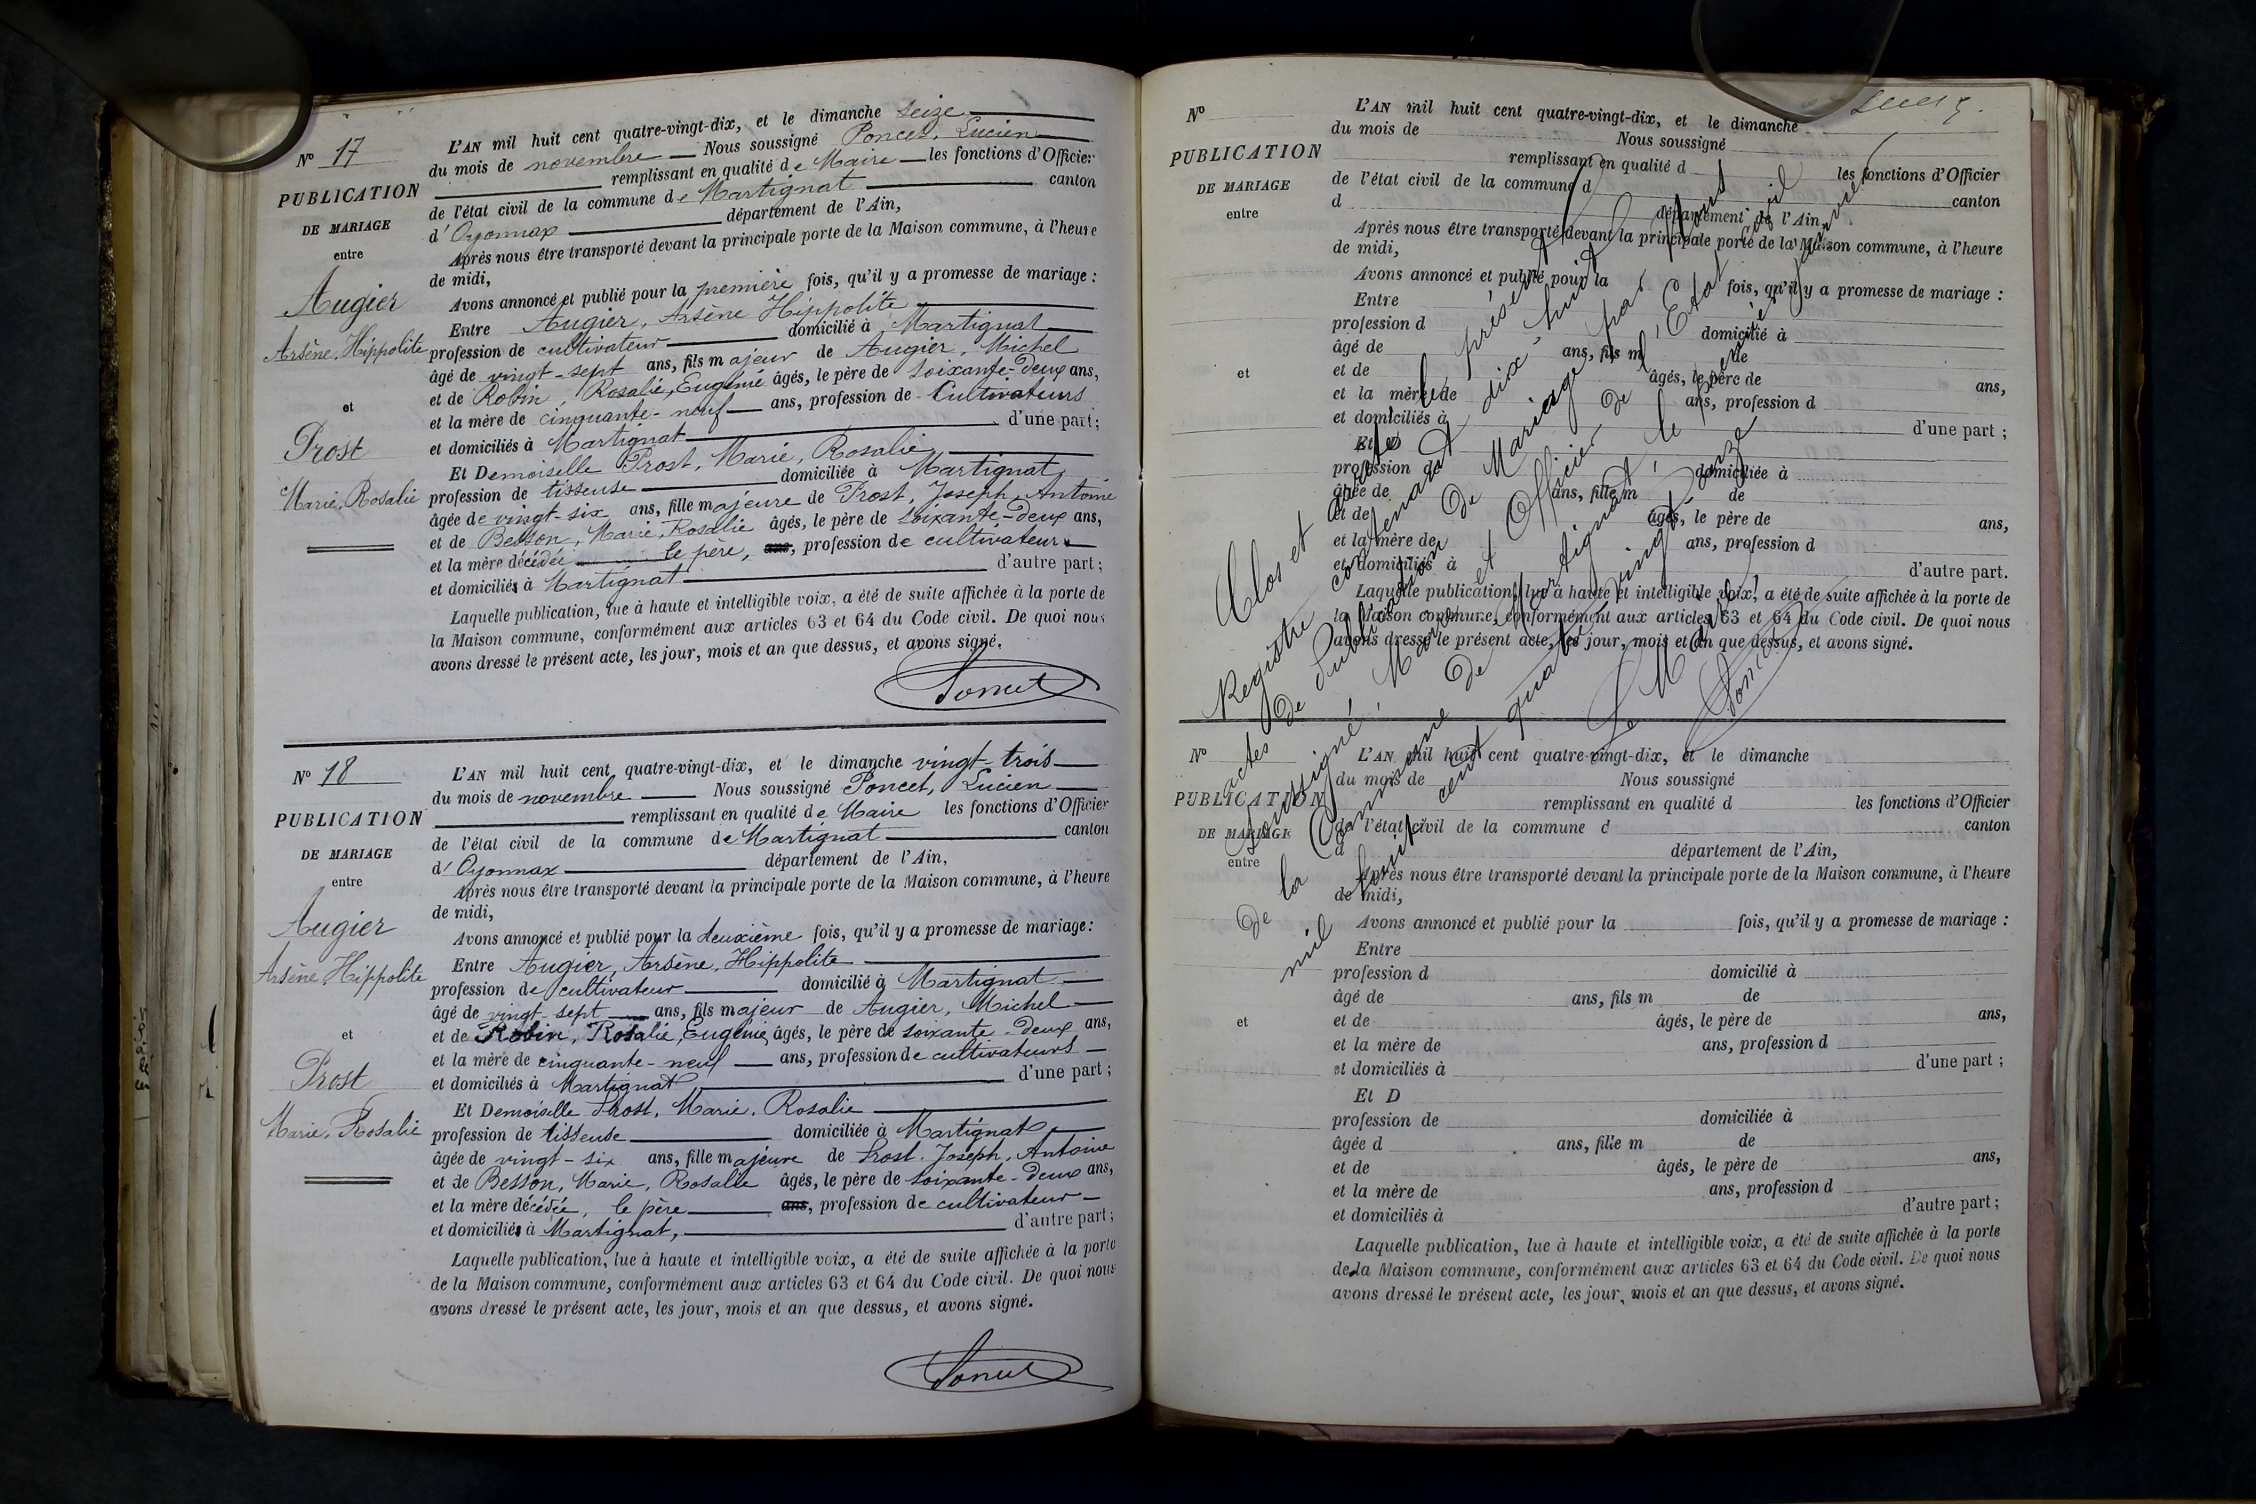 N° 17
PUBLICATION
DE MARIAGE
entre
Augier
Arsène, Hippolite
et
Prost
Marie, Rosalie
L'AN mil huit cent quatre-vingt-dix, et le dimanche seize
du mois de novembre Nous soussigné Poncet, Lucien
remplissant en qualité de Maire les fonctions d'Officier
de l'état civil de la commune de Martignat canton
d'Oyonnax département de l'Ain,
Après nous être transporté devant la principale porte de la Maison commune, à l'heure
de midi,
Avons annoncé et publié pour la première fois, qu'il y a promesse de mariage :
Entre Augier, Arsène Hippolite
profession de cultivateur domicilié à Martignat
âgé de vingt-sept ans, fils majeur de Augier, Michel
et de Robin, Rosalie, Eugénie âgés, le père de soixante-deux ans,
et la mère de cinquante-neuf ans, profession de Cultivateurs
et domiciliés à Martignat d'une part;
Et Demoiselle Prost, Marie, Rosalie
profession de tisseuse domiciliée à Martignat
âgée de vingt-six ans, fille majeure de Prost, Joseph, Antoine
et de Besson, Marie, Rosalie âgés, le père de soixante-deux ans,
et la mère décédée le père, ans, profession de cultivateur
et domiciliés à Martignat d'autre part;
Laquelle publication, lue à haute et intelligible voix, a été de suite affichée à la porte de
la Maison commune, conformément aux articles 63 et 64 du Code civil. De quoi nous
avons dressé le présent acte, les jour, mois et an que dessus, et avons signé.
Poncet
N° 18
PUBLICATION
DE MARIAGE
entre
Augier
Arsène, Hippolite
et
Prost
Marie, Rosalie
L'AN mil huit cent quatre-vingt-dix, et le dimanche vingt-trois
du mois de novembre Nous soussigné Poncet, Lucien
remplissant en qualité de Maire les fonctions d'Officier
de l'état civil de la commune de Martignat canton
d'Oyonnax département de l'Ain,
Après nous être transporté devant la principale porte de la Maison commune, à l'heure
de midi,
Avons annoncé et publié pour la deuxième fois, qu'il y a promesse de mariage :
Entre Augier, Arsène, Hippolite
profession de cultivateur domicilié à Martignat
âgé de vingt-sept ans, fils majeur de Augier, Michel
et de Robin, Rosalie, Eugénie, âgés, le père de soixante-deux ans,
et la mère de cinquante-neuf ans, profession de cultivateurs
et domiciliés à Martignat d'une part ;
Et Demoiselle Prost, Marie, Rosalie
profession de tisseuse domiciliée à Martignat
âgée de vingt-six ans, fille majeure de Prost, Joseph, Antoine
et de Besson, Marie, Rosalie âgés, le père de soixante-deux ans,
et la mère décédée, le père ans, profession de cultivateur
et domiciliés à Martignat, d'autre part ;
Laquelle publication, lue à haute et intelligible voix, a été de suite affichée à la porte
de la Maison commune, conformément aux articles 63 et 64 du Code civil. De quoi nous
avons dressé le présent acte, les jour, mois et an que dessus, et avons signé.
Poncet
N°
PUBLICATION
DE MARIAGE
entre
et
L'AN mil huit cent quatre-vingt-dix, et le dimanche
du mois de Nous soussigné
remplissant en qualité d les fonctions d'Officier
de l'état civil de la commune d canton
d département de l'Ain,
Après nous être transporté devant la principale porte de la Maison commune, à l'heure
de midi,
Avons annoncé et publié pour la fois, qu'il y a promesse de mariage :
Entre
profession d domicilié à
âgé de ans, fils m de
et de âgés, le père de ans,
et la mère de ans, profession d
et domiciliés à d'une part ;
Et D
profession de domiciliée à
âgée de ans, fille m de
et de âgés, le père de ans,
et la mère de ans, profession d
et domiciliés à d'autre part.
Laquelle publication, lue à haute et intelligible voix, a été de suite affichée à la porte de
la Maison commune, conformément aux articles 63 et 64 du Code civil. De quoi nous
avons dressé le présent acte, les jour, mois et an que dessus, et avons signé.
Clos et arrêté le présent
Registre contenant dix huit
actes de Publication de Mariage par Nous
soussigné, Maire et Officier de l'Etat civil
de la Commune de Martignat, le premier janvier
mil huit cent quatre vingt onze
Le Maire
Poncet
N°
PUBLICATION
DE MARIAGE
entre
et
L'AN mil huit cent quatre-vingt-dix, et le dimanche
du mois de Nous soussigné
remplissant en qualité d les fonctions d'Officier
de l'état civil de la commune d canton
d département de l'Ain,
Après nous être transporté devant la principale porte de la Maison commune, à l'heure
de midi,
Avons annoncé et publié pour la fois, qu'il y a promesse de mariage :
Entre
profession d domicilié à
âgé de ans, fils m de
et de âgés, le père de ans,
et la mère de ans, profession d
et domiciliés à d'une part ;
Et D
profession de domiciliée à
âgée d ans, fille m de
et de âgés, le père de ans,
et la mère de ans, profession d
et domiciliés à d'autre part ;
Laquelle publication, lue à haute et intelligible voix, a été de suite affichée à la porte
de la Maison commune, conformément aux articles 63 et 64 du Code civil. De quoi nous
avons dressé le présent acte, les jour, mois et an que dessus, et avons signé.